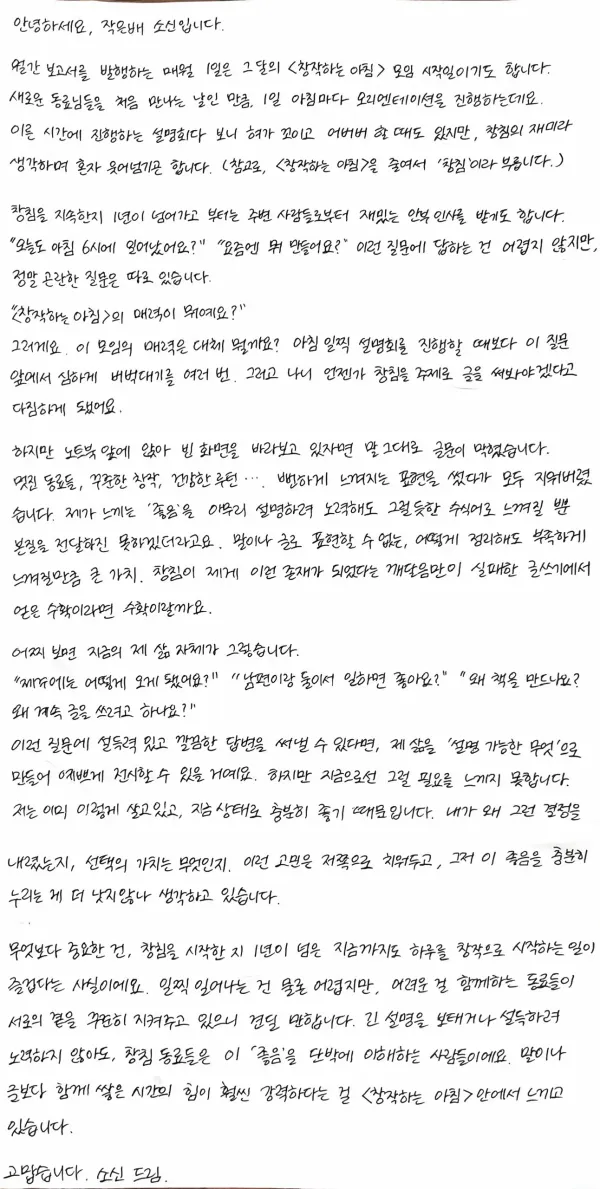 안녕하세요, 작은배 소신입니다.
월간 보고서를 발행하는 매월 1일은 그 달의 <창작하는 아침> 모임 시작일이기도 합니다.
새로운 동료님들을 처음 만나는 날인 만큼, 1일 아침마다 오리엔테이션을 진행하는데요.
이른 시간에 진행하는 설명회다 보니 혀가 꼬이고 어버버 할 때도 있지만, 창침의 재미라
생각하며 혼자 웃어넘기곤 합니다. (참고로, <창작하는 아침>을 줄여서 '창침'이라 부릅니다.)
창침을 지속한지 1년이 넘어가고 부터는 주변 사람들로부터 재밌는 안부 인사를 받기도 합니다.
"오늘도 아침 6시에 일어났어요?" "요즘엔 뭐 만들어요?" 이런 질문에 답하는 건 어렵지 않지만,
정말 곤란한 질문은 따로 있습니다.
"<창작하는 아침>의 매력이 뭐예요?"
그러게요. 이 모임의 매력은 대체 뭘까요? 아침 일찍 설명회를 진행할 때보다 이 질문
앞에서 심하게 버벅대기를 여러 번. 그러고 나니 언젠가 창침을 주제로 글을 써봐야겠다고
다짐하게 됐어요.
하지만 노트북 앞에 앉아 빈 화면을 바라보고 있자면 말 그대로 글문이 막혔습니다.
멋진 동료들, 꾸준한 창작, 건강한 루틴…. 뻔하게 느껴지는 표현을 썼다가 모두 지워버렸
습니다. 제가 느끼는 '좋음'을 아무리 설명하려 노력해도 그럴듯한 수식어로 느껴질 뿐
본질을 전달하진 못하겠더라고요. 말이나 글로 표현할 수 없는, 어떻게 정리해도 부족하게
느껴질만큼 큰 가치. 창침이 제게 이런 존재가 되었다는 깨달음만이 실패한 글쓰기에서
얻은 수확이라면 수확이랄까요.
어찌 보면 지금의 제 삶 자체가 그렇습니다.
"제주에는 어떻게 오게 됐어요?" "남편이랑 둘이서 일하면 좋아요?" "왜 책을 만드나요?
왜 계속 글을 쓰려고 하나요?"
이런 질문에 설득력 있고 깔끔한 답변을 써낼 수 있다면, 제 삶을 '설명 가능한 무엇'으로
만들어 예쁘게 전시할 수 있을 거예요. 하지만 지금으로선 그럴 필요를 느끼지 못합니다.
저는 이미 이렇게 살고있고, 지금 상태로 충분히 좋기 때문입니다. 내가 왜 그런 결정을
내렸는지, 선택의 가치는 무엇인지. 이런 고민은 저쪽으로 치워두고, 그저 이 좋음을 충분히
누리는 게 더 낫지않나 생각하고 있습니다.
무엇보다 중요한 건, 창침을 시작한 지 1년이 넘은 지금까지도 하루를 창작으로 시작하는 일이
즐겁다는 사실이에요. 일찍 일어나는 건 물론 어렵지만, 어려운 걸 함께하는 동료들이
서로의 곁을 꾸준히 지켜주고 있으니 견딜 만합니다. 긴 설명을 보태거나 설득하려
노력하지 않아도, 창침 동료들은 이 '좋음'을 단박에 이해하는 사람들이에요. 말이나
글보다 함께 쌓은 시간의 힘이 훨씬 강력하다는 걸 <창작하는 아침> 안에서 느끼고
있습니다.
고맙습니다. 소신 드림.